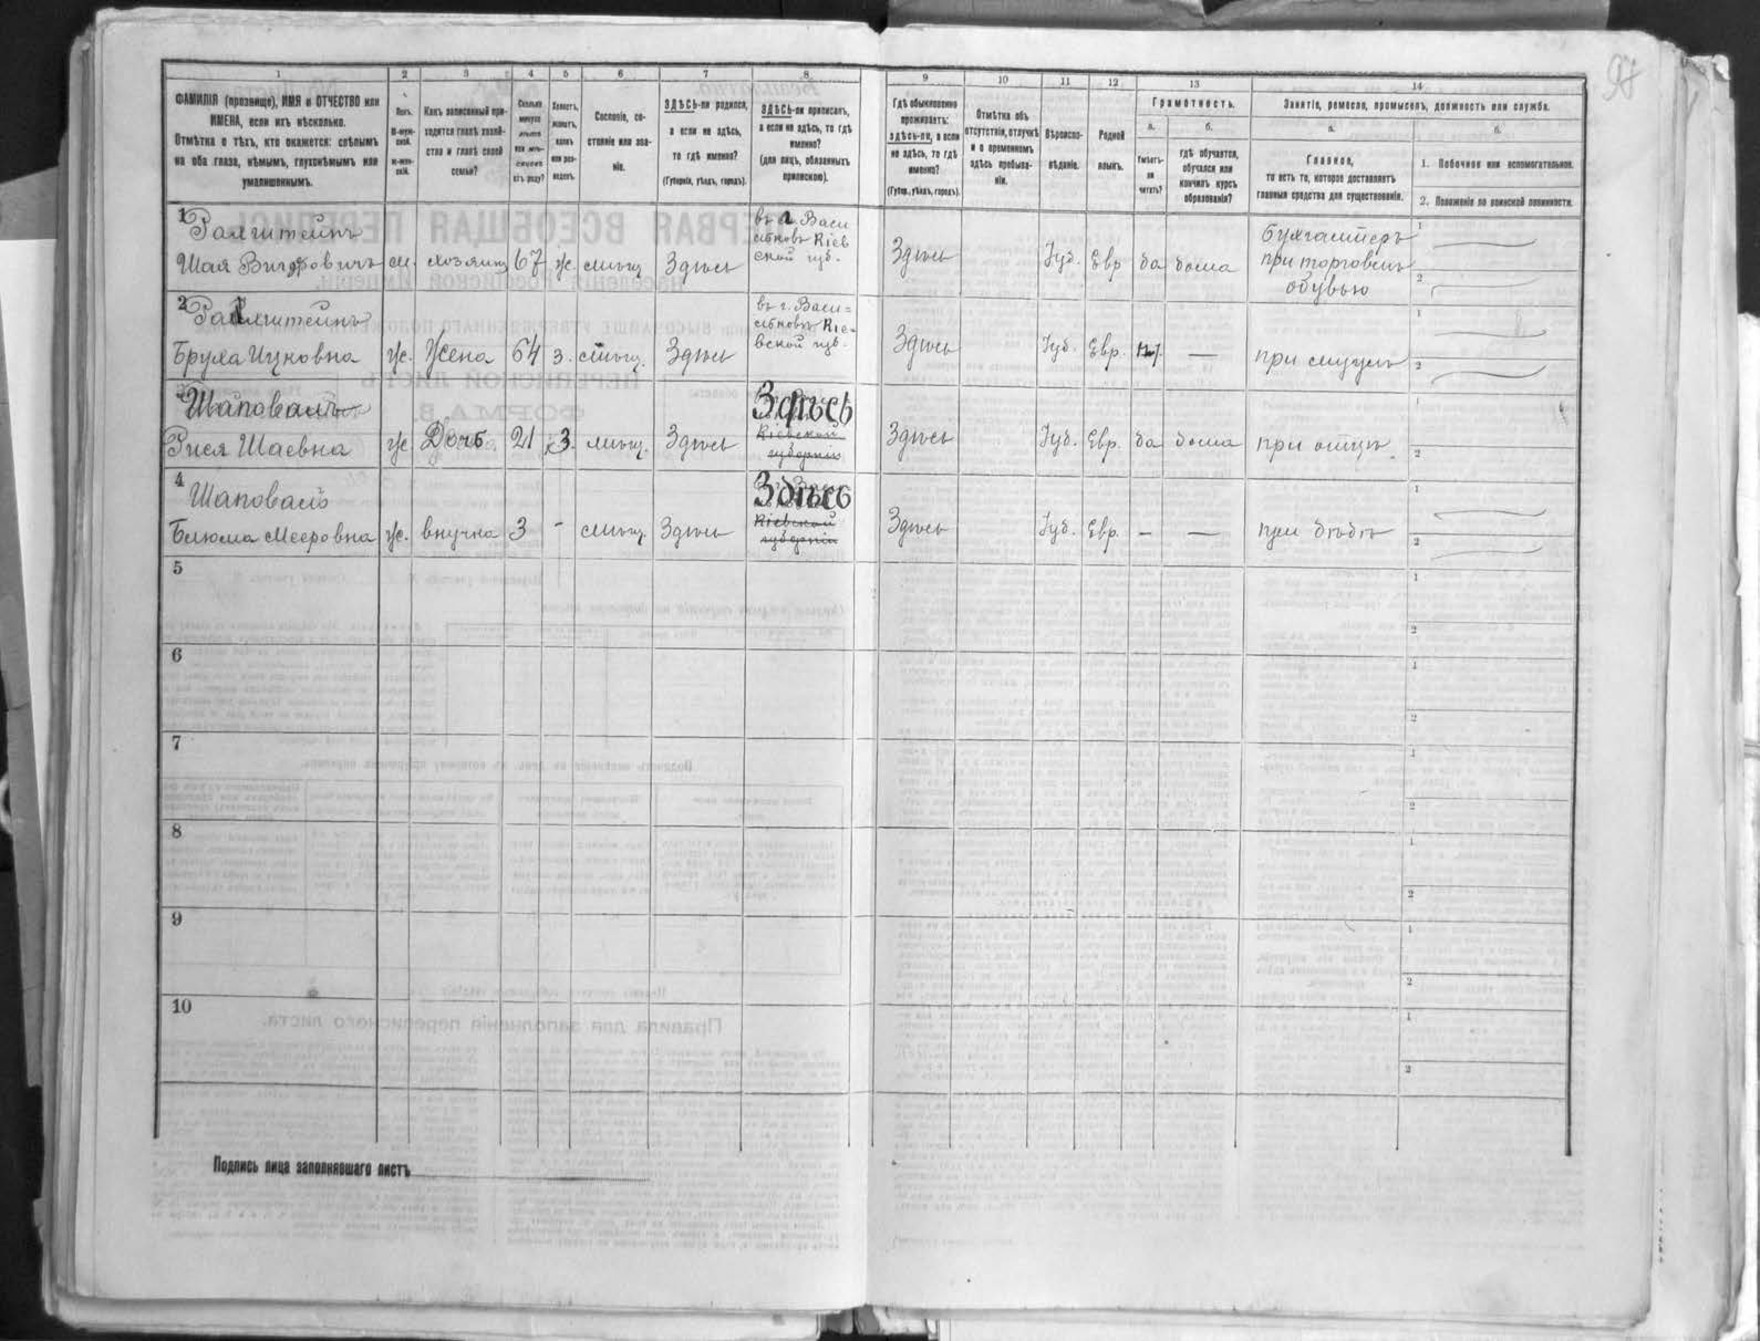 97
1 2 3 4 5 6 7 8 9 10 11 12 13 14
ФАМИЛІЯ (прозвище), ИМЯ и ОТЧЕСТВО или
ИМЕНА, если ихъ нѣсколько.
Отмѣтка о тѣхъ, кто окажется: слѣпымъ
на оба глаза, нѣмымъ, глухонѣмымъ или
умалишеннымъ.
Полъ.
М-муж-
ской.
Ж-жен-
скій.
Какъ записанный при-
ходится главѣ хозяй-
ства и главѣ своей
семьи?
Сколько
минуло
лѣтъ
или мѣ-
сяцевъ
отъ роду?
Холостъ,
женатъ,
вдовъ
или раз-
веденъ.
Сословіе, со-
стояніе или зва-
ніе.
ЗДѢСЬ-ли родился,
а если не здѣсь,
то гдѣ именно?
(Губернія, уѣздъ, городъ).
ЗДѢСЬ-ли приписанъ,
а если не здѣсь, то гдѣ
именно?
(для лицъ, обязанныхъ
припискою).
Гдѣ обыкновенно
проживаетъ:
здѣсь-ли, а если
не здѣсь, то гдѣ
именно?
(Губер., уѣздъ, городъ).
Отмѣтка объ
отсутствіи, отлучкѣ
и о временномъ
здѣсь пребыва-
ніи.
Вѣроиспо-
вѣданіе.
Родной
языкъ.
Грамотность.
а.
Умѣетъ-
ли
читать?
б.
гдѣ обучается,
обучался или
кончилъ курсъ
образованія?
Занятіе, ремесло, промыселъ, должность или служба.
а.
Главное,
то есть то, которое доставляетъ
главныя средства для существованія.
б.
1. Побочное или вспомогательное.
2. Положеніе по воинской повинности.
1
Шая м. хозяинъ 67 ж. мѣщ. Здѣсь
въ г. Васи
льковъ Кіев
ской губ.
Здѣсь Іуд. Евр да дома
бухгалтеръ
при торговлѣ
обувью
1
2
2
Ицковна ж. Жена 64 з. мѣщ. Здѣсь
въ г. Васи=
льковъ Кіе-
вской губ.
Здѣсь Іуд. Евр. —
при мужѣ
1
2
Шаповалъ
Рися Шаевна ж. Дочь 21 з. мѣщ. Здѣсь
Здѣсь
Кіевской
губерніи
Здѣсь Іуд. Евр. да дома при отцѣ.
1
2
4
Шаповалъ
Мееровна ж. внучка 3 - мѣщ. Здѣсь
Здѣсь
Кіевской
губерніи
Здѣсь Іуд. Евр. — — при дѣдѣ
1
2
5
1
2
6
1
2
7
1
2
8
1
2
9
1
2
10
1
2
Подпись лица заполнявшаго листъ